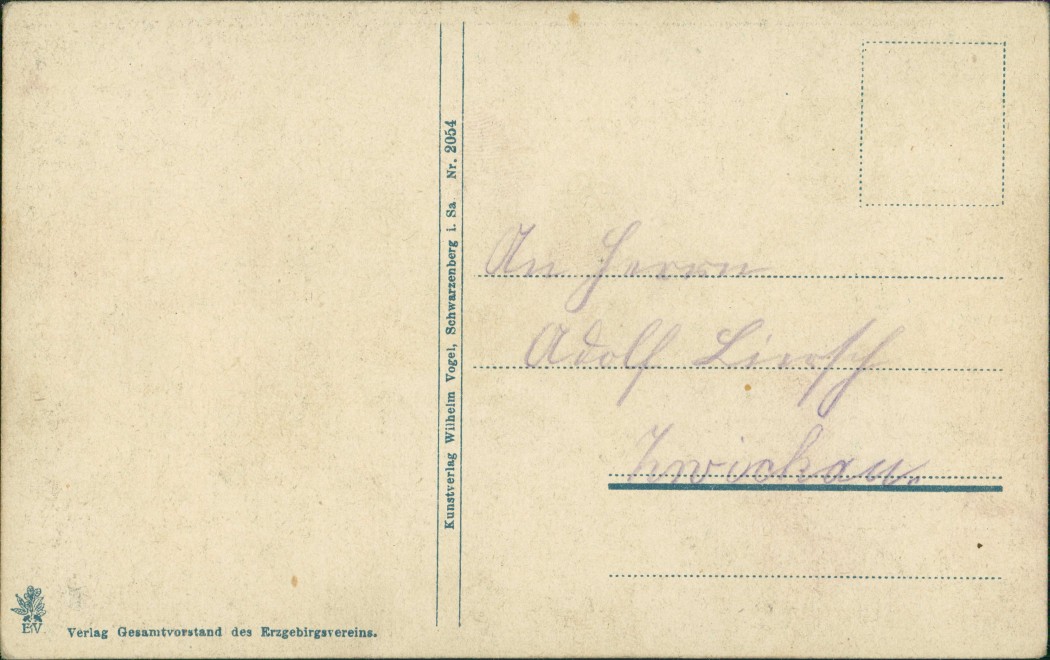 Kunstverlag Wilhelm Vogel, Schwarzenberg i. Sa. Nr. 2054
An Herrn
Adolf Liersch
Zwickau.
EV
Verlag Gesamtvorstand des Erzgebirgsvereins.